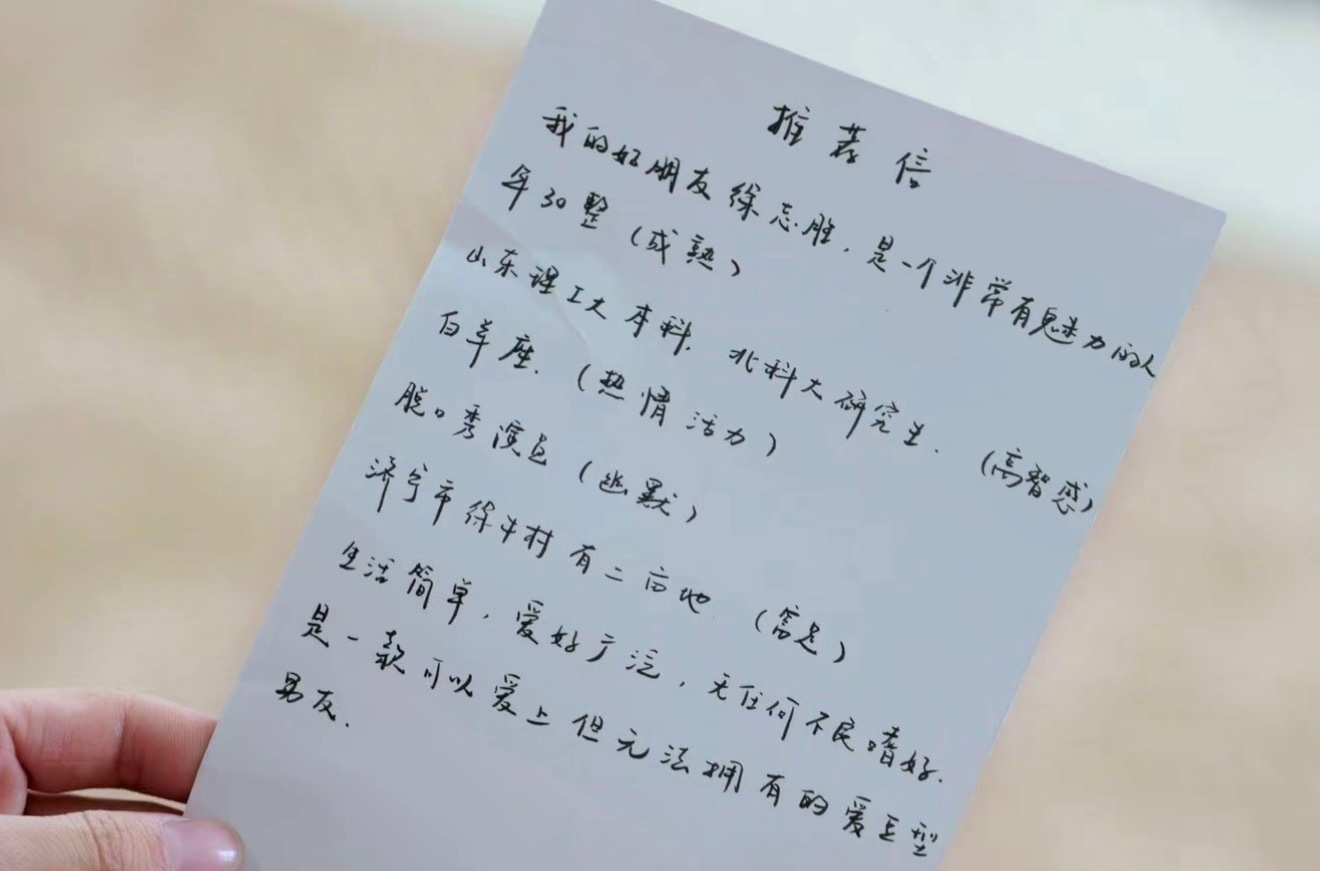 推荐信
我的好朋友徐志胜，是一个非常有魅力的人
年30整（成熟）
山东理工大本科，北科大研究生．（高智感）
白羊座．（热情活力）
脱口秀演员（幽默）
济宁市徐牛村有二亩地．（富足）
生活简单，爱好广泛，无任何不良嗜好．
是一款可以爱上但无法拥有的爱豆型
男友．